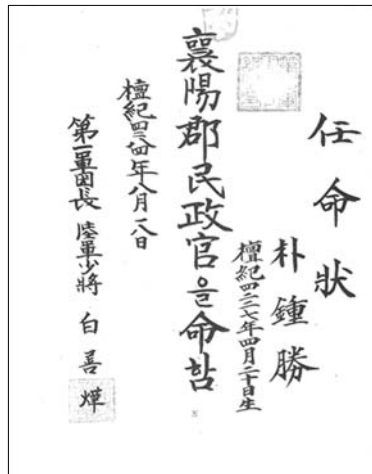 任命狀
朴鍾勝
檀紀四二三七年四月二十日生
襄陽郡民政官을命함
檀紀四二八四年八月八日
第一軍団長 陸軍少將 白善燁